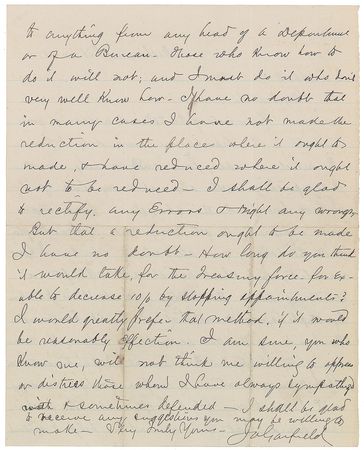 to anything from any head of a Department
or of a Bureau. Those who know how to
do it will not; and I must do it who don't
very well know how. I have no doubt that
in many cases I have not made the
reduction in the places where it ought to
made, & have reduced where it ought
not to be reduced — I shall be glad
to rectify any Errors & right any wrongs
But that a reduction ought to be made
I have no doubt — How long do you think
it would take, for the Treasury force for Ex-
able to decrease 10% by stopping appointments?
I would greatly prefer that method, if it would
be reasonably effection. I am sure, you who
know me, will not think me willing to oppress
or distress those whom I have always sympathized
with & sometimes defended — I shall be glad
to receive any suggestions you may be willing to
make — Very Truly Yours — J A Garfield